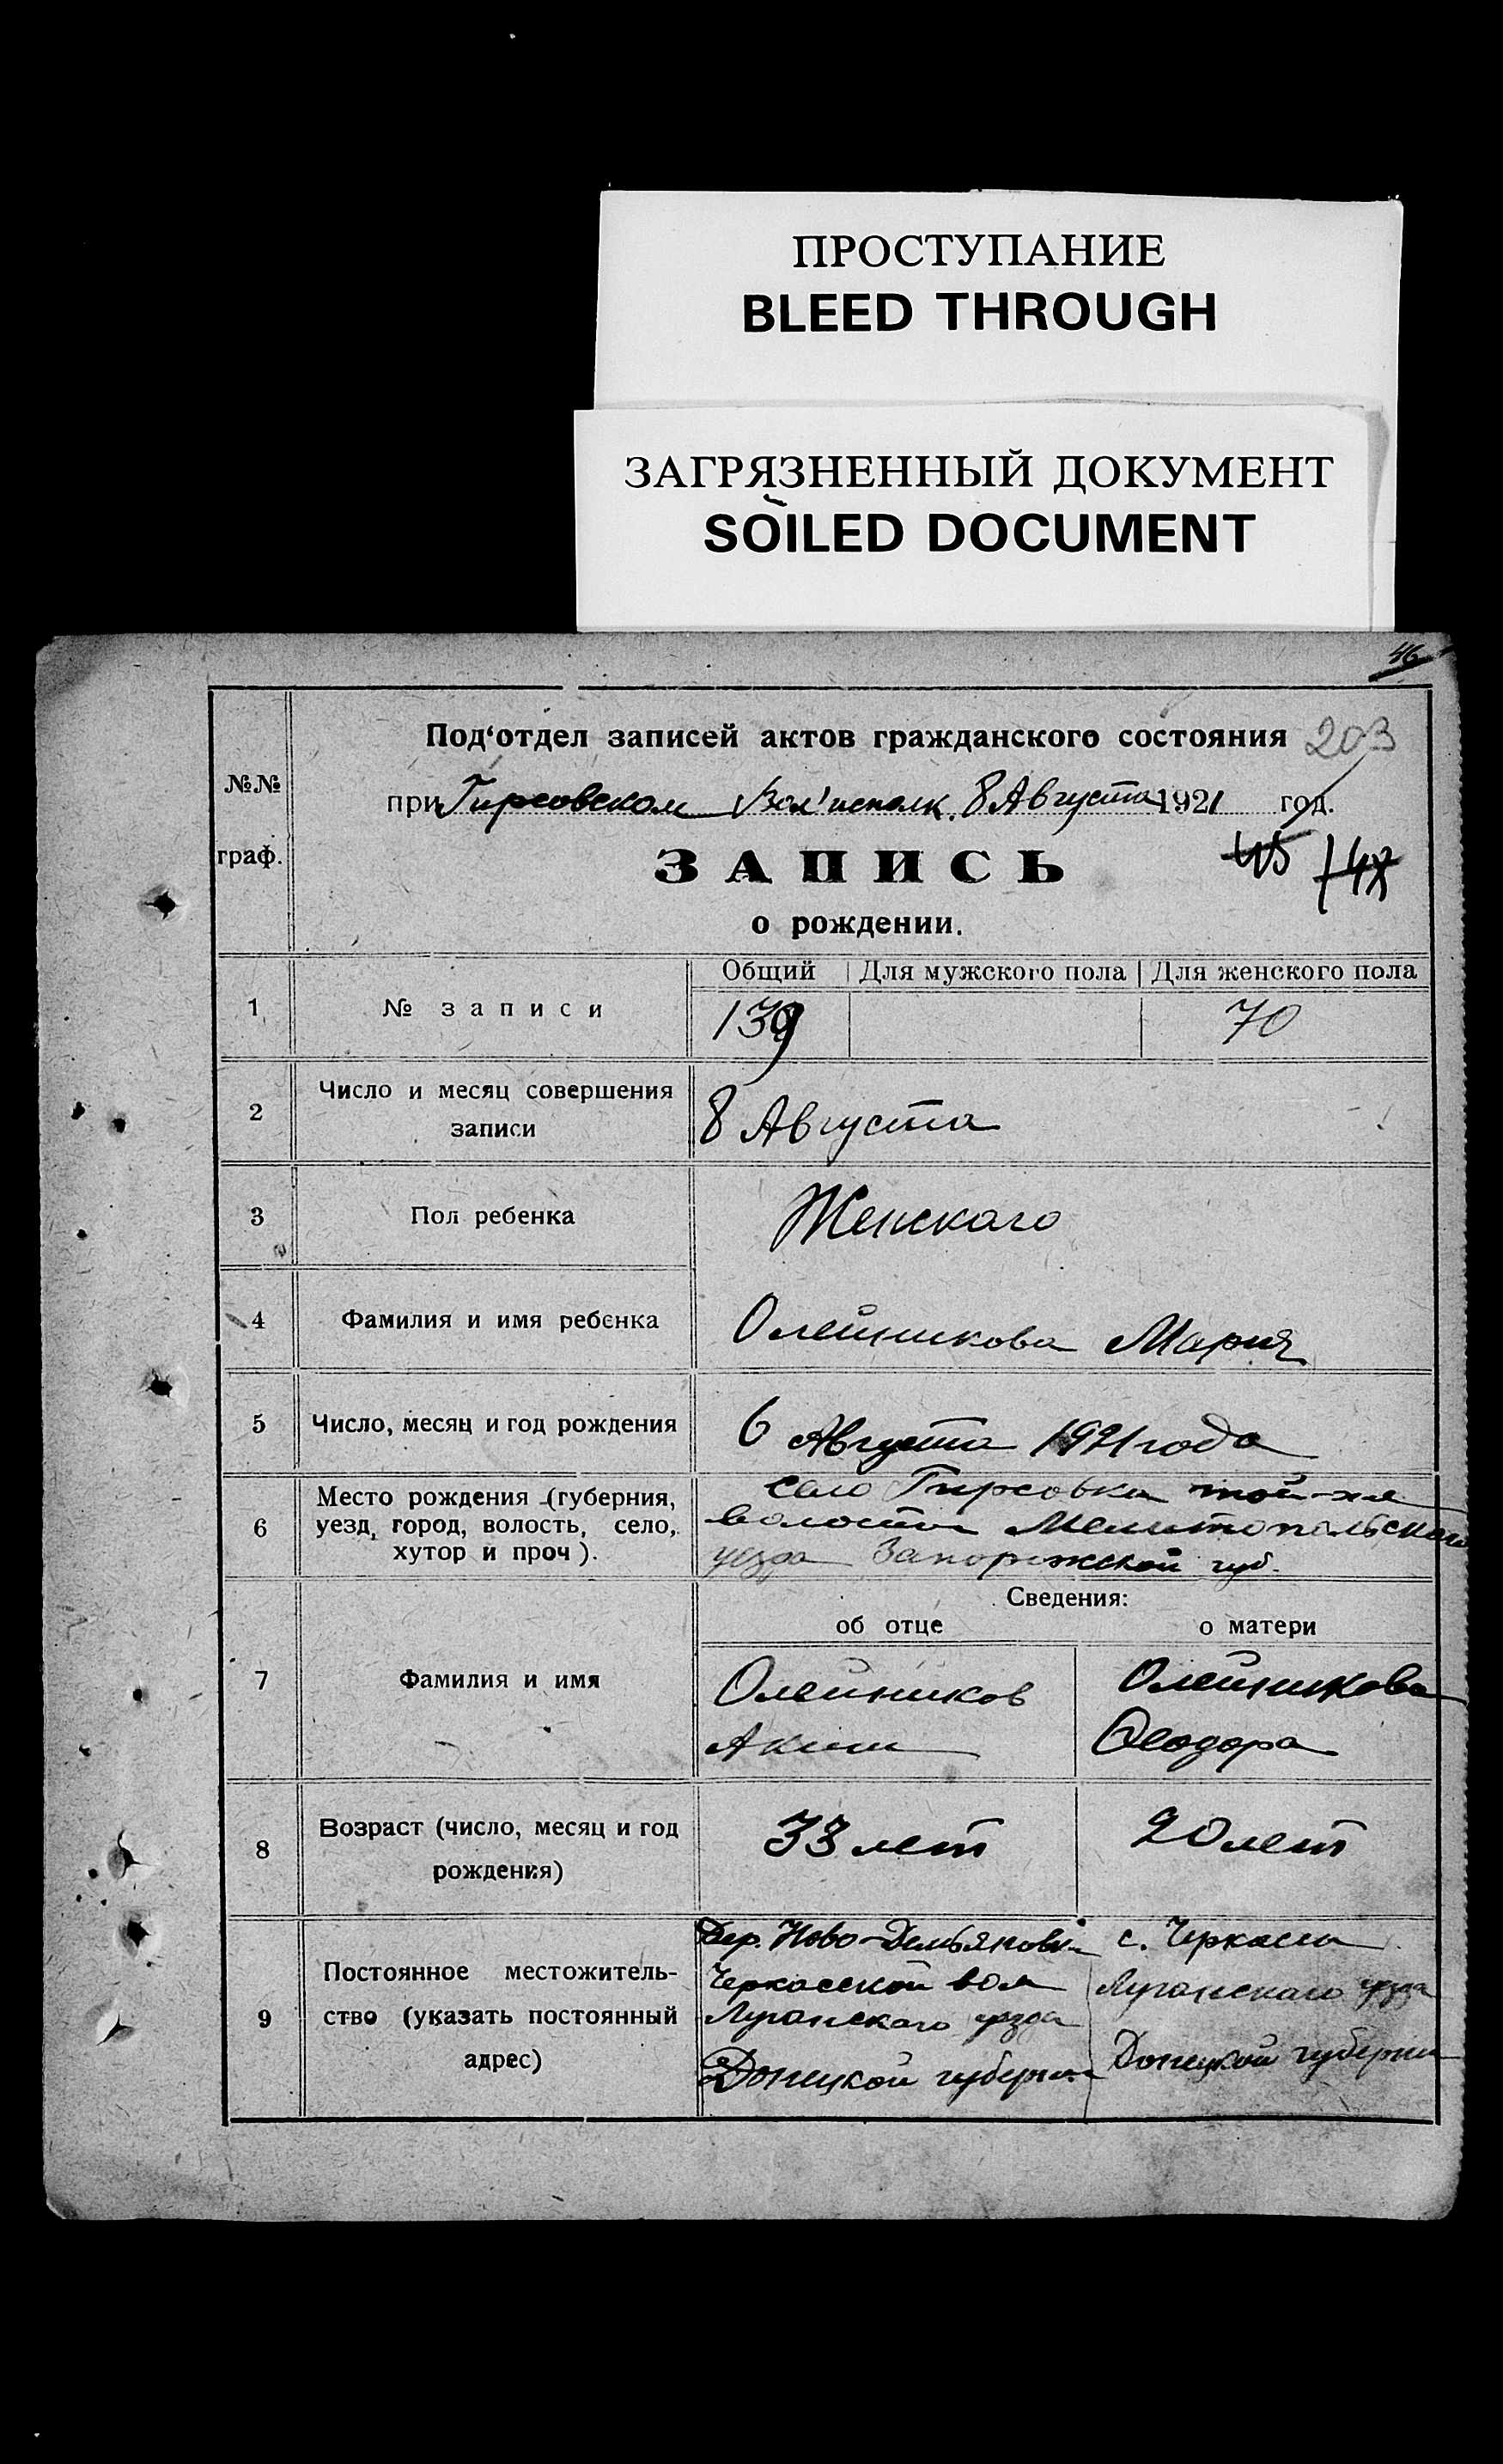 ПРОСТУПАНИЕ
BLEED THROUGH
ЗАГРЯЗНЕННЫЙ ДОКУМЕНТ
SOILED DOCUMENT
46
Под‘отдел записей актов гражданского состояния 203
№№ при Гирсовском Вол'исполк. 8 Августа 1921 год.
граф. ЗАПИСЬ 45
о рождении.
Общий Для мужского пола Для женского пола
1 № записи 139 70
2 Число и месяц совершения
записи 8 Августа
3 Пол ребенка Женскаго
4 Фамилия и имя ребенка Олейникова Мария
5 Число, месяц и год рождения 6 Августа 1921 года
6 Место рождения (губерния, село Гирсовка той-же
уезд, город, волость, село, волости Мелитопольскаго
хутор и проч). уезда Запорожской губ.
Сведения:
об отце о матери
7 Фамилия и имя Олейников Олейникова
Аким Феодора
8 Возраст (число, месяц и год
рождения) 33 лет 20 лет
Дер. Ново-Демьяновка с. Черкассы
9 Постоянное местожитель- Черкасской вол Луганскаго уезда
ство (указать постоянный Луганскаго уезда
адрес) Донецкой губернии Донецкой губернии